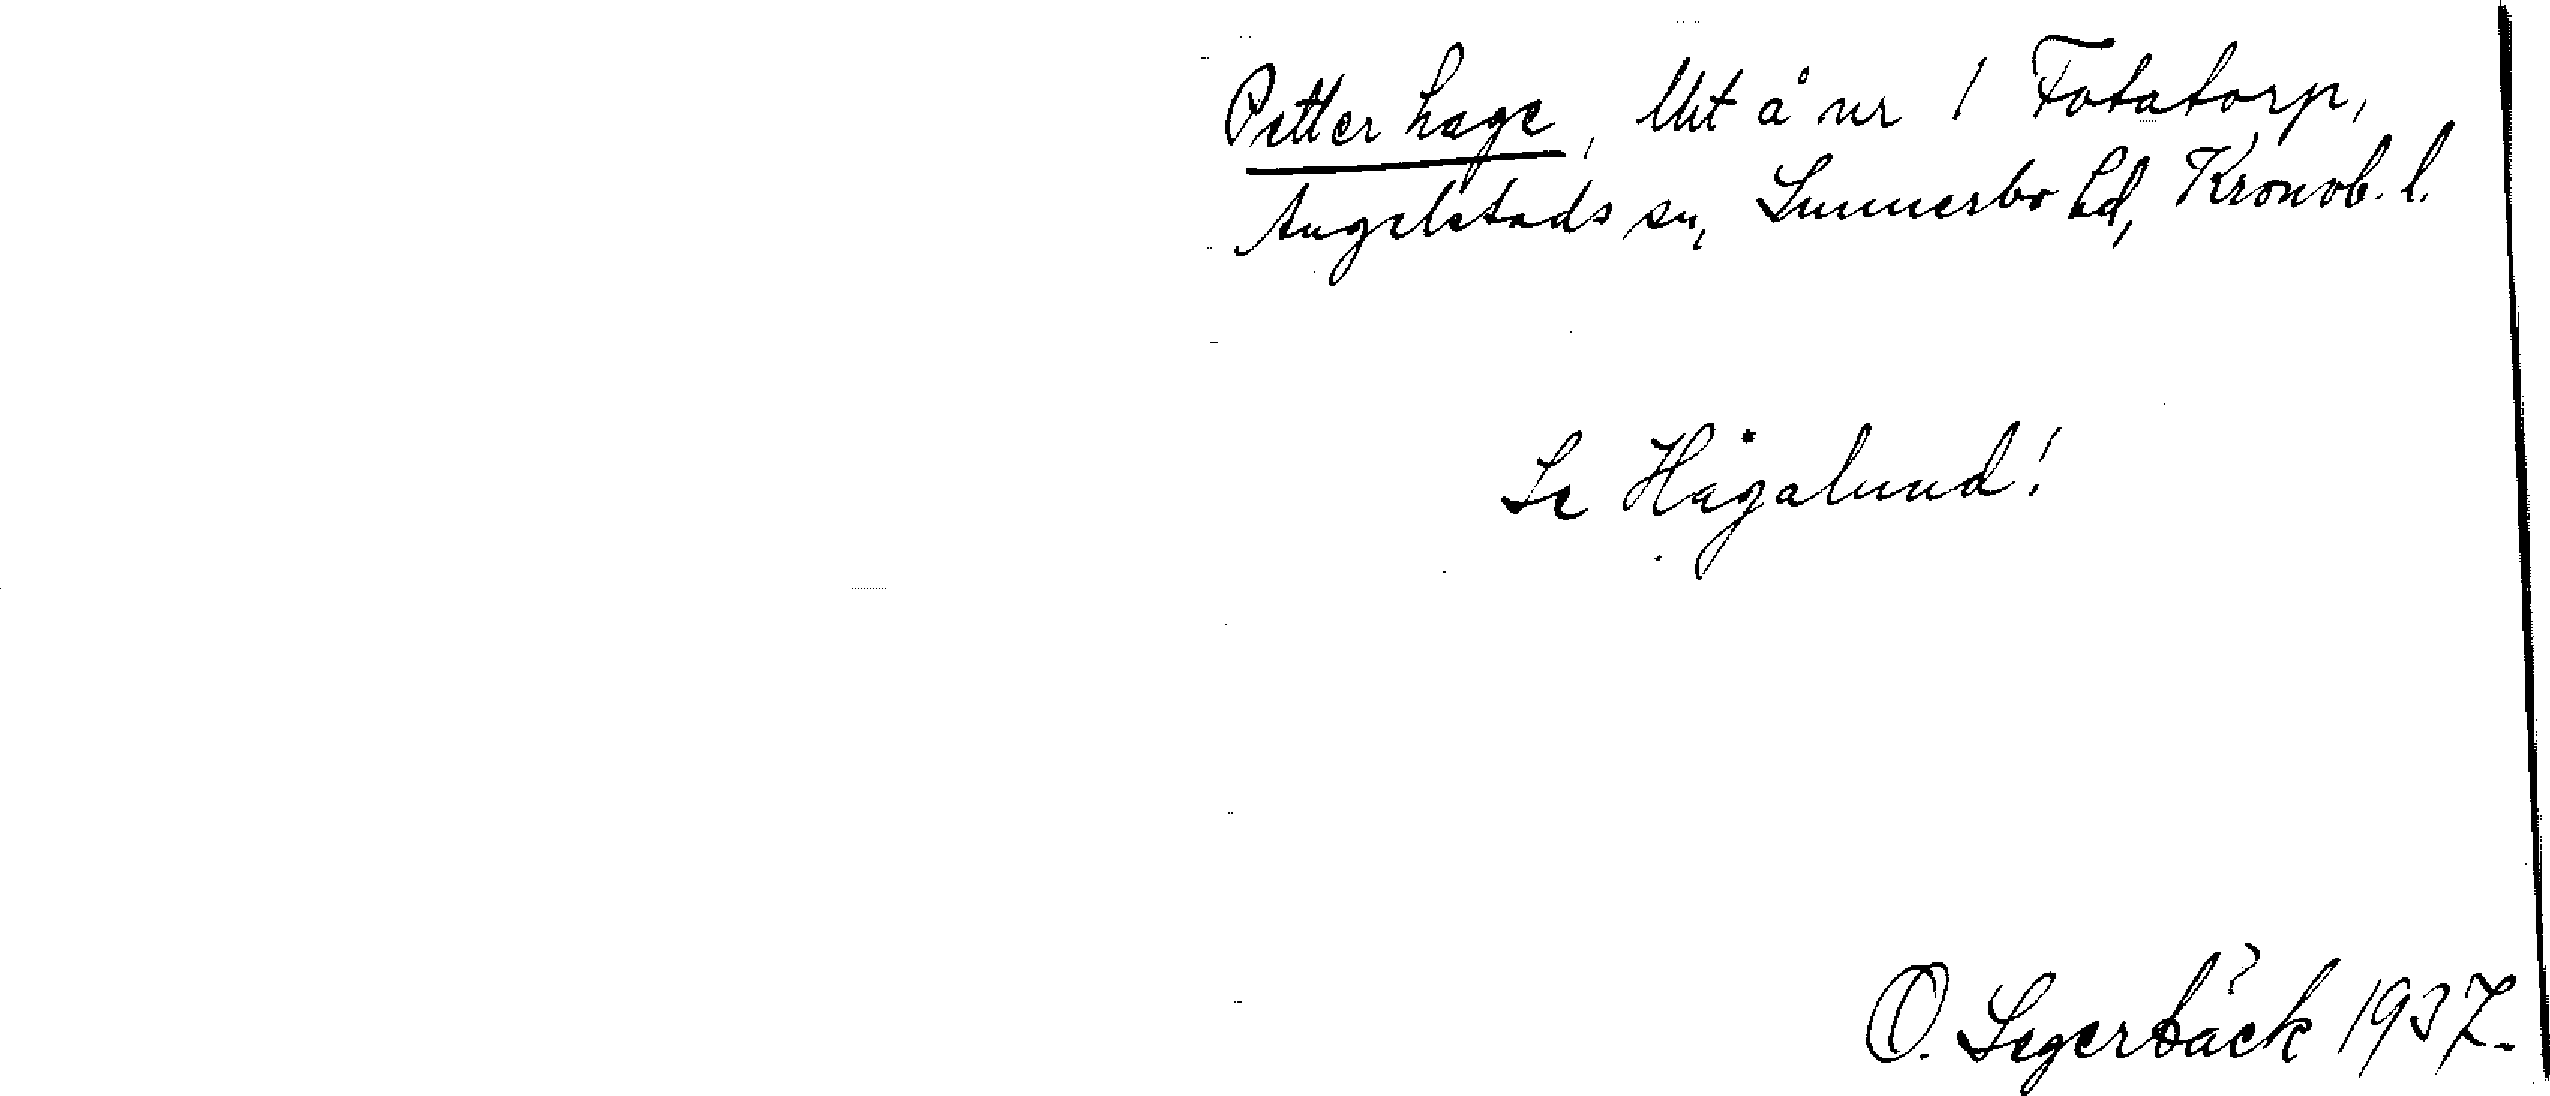 Petter hage, Utt å nr 1 Fotatorp,
Angelstads sn, Sunnerbo hd, Kronob. l.
Se Hågalund!
O. Segerbäck 1937.